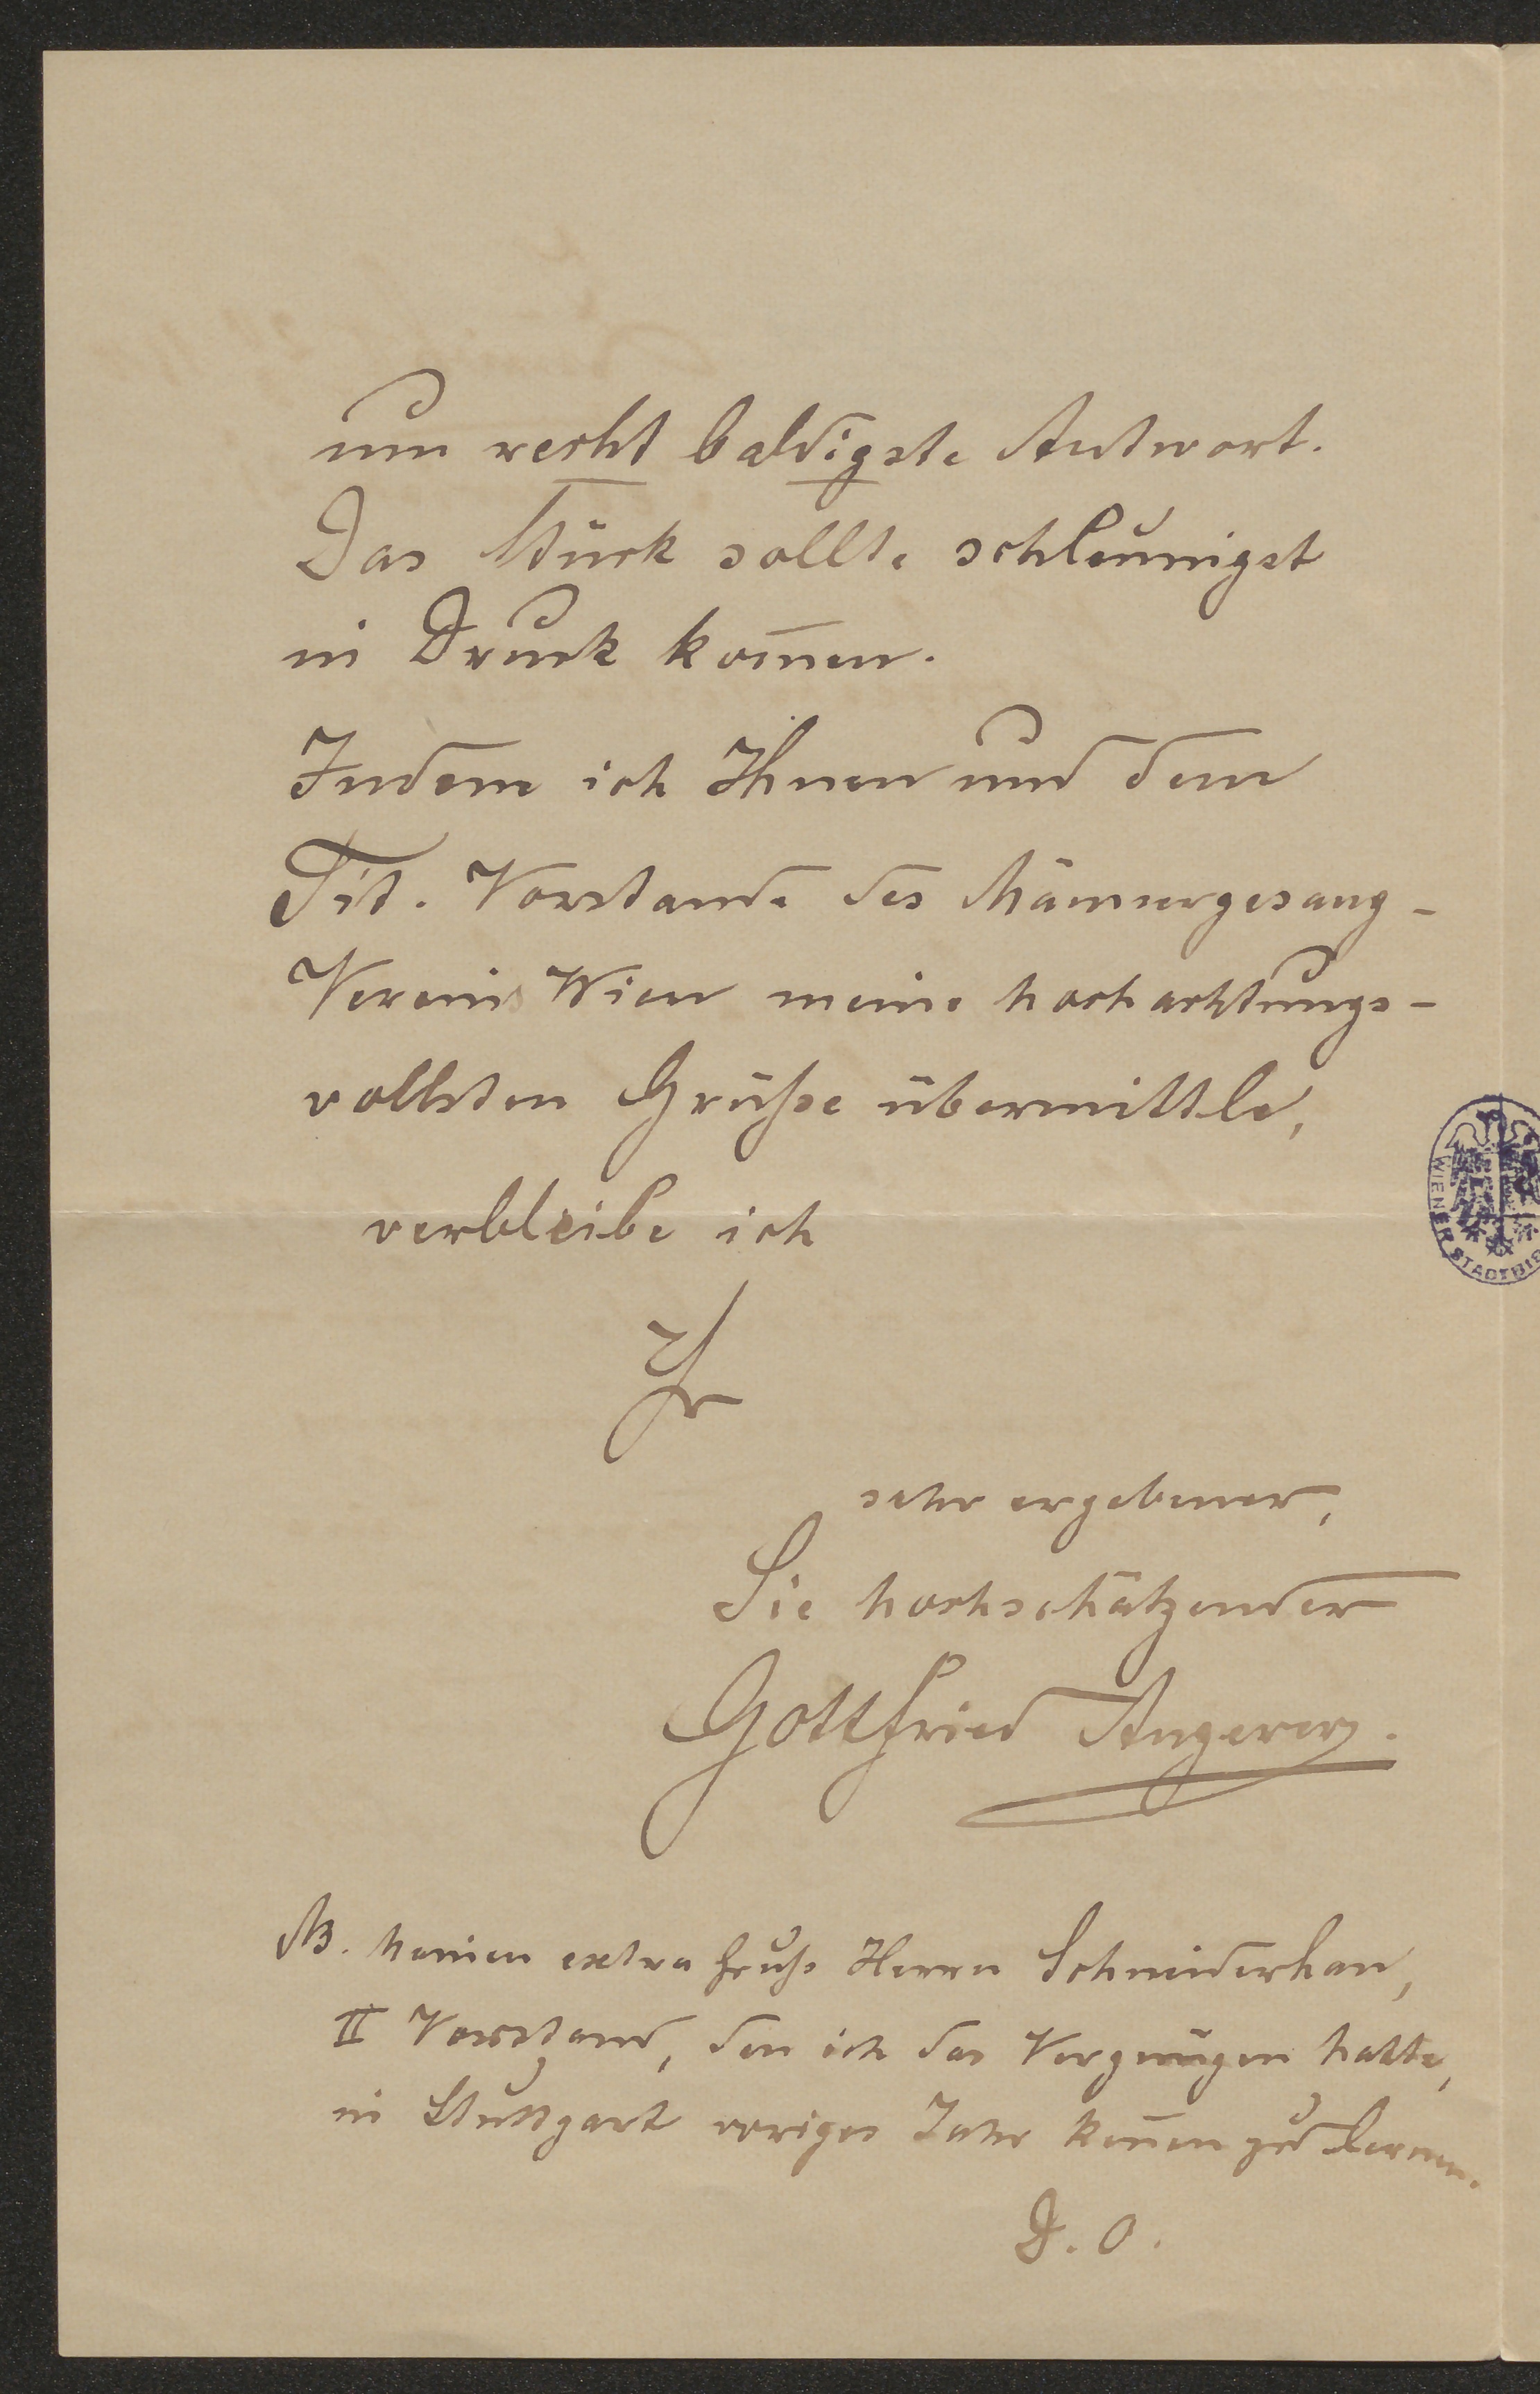 um recht baldigste Antwort.
Das Stück sollte schleunigst
in Druck kom̅en.
Indem ich Ihnen und dem
Tit. Vorstande des Männergesang-
Vereins Wien meine hochachtungs-
vollsten Grüße übermittle,
verbleibe ich
Ihr
sehr ergebener,
Sie hochschätzender
Gottfried Angerer.
NB. Meinen extra Gruß Herrn Schneiderhan,
II Vorstand, den ich das Vergnügen hatte,
in Stuttgart voriges Jahr ken̅en zu lernen.
D. O.
WIENER STADTBIB